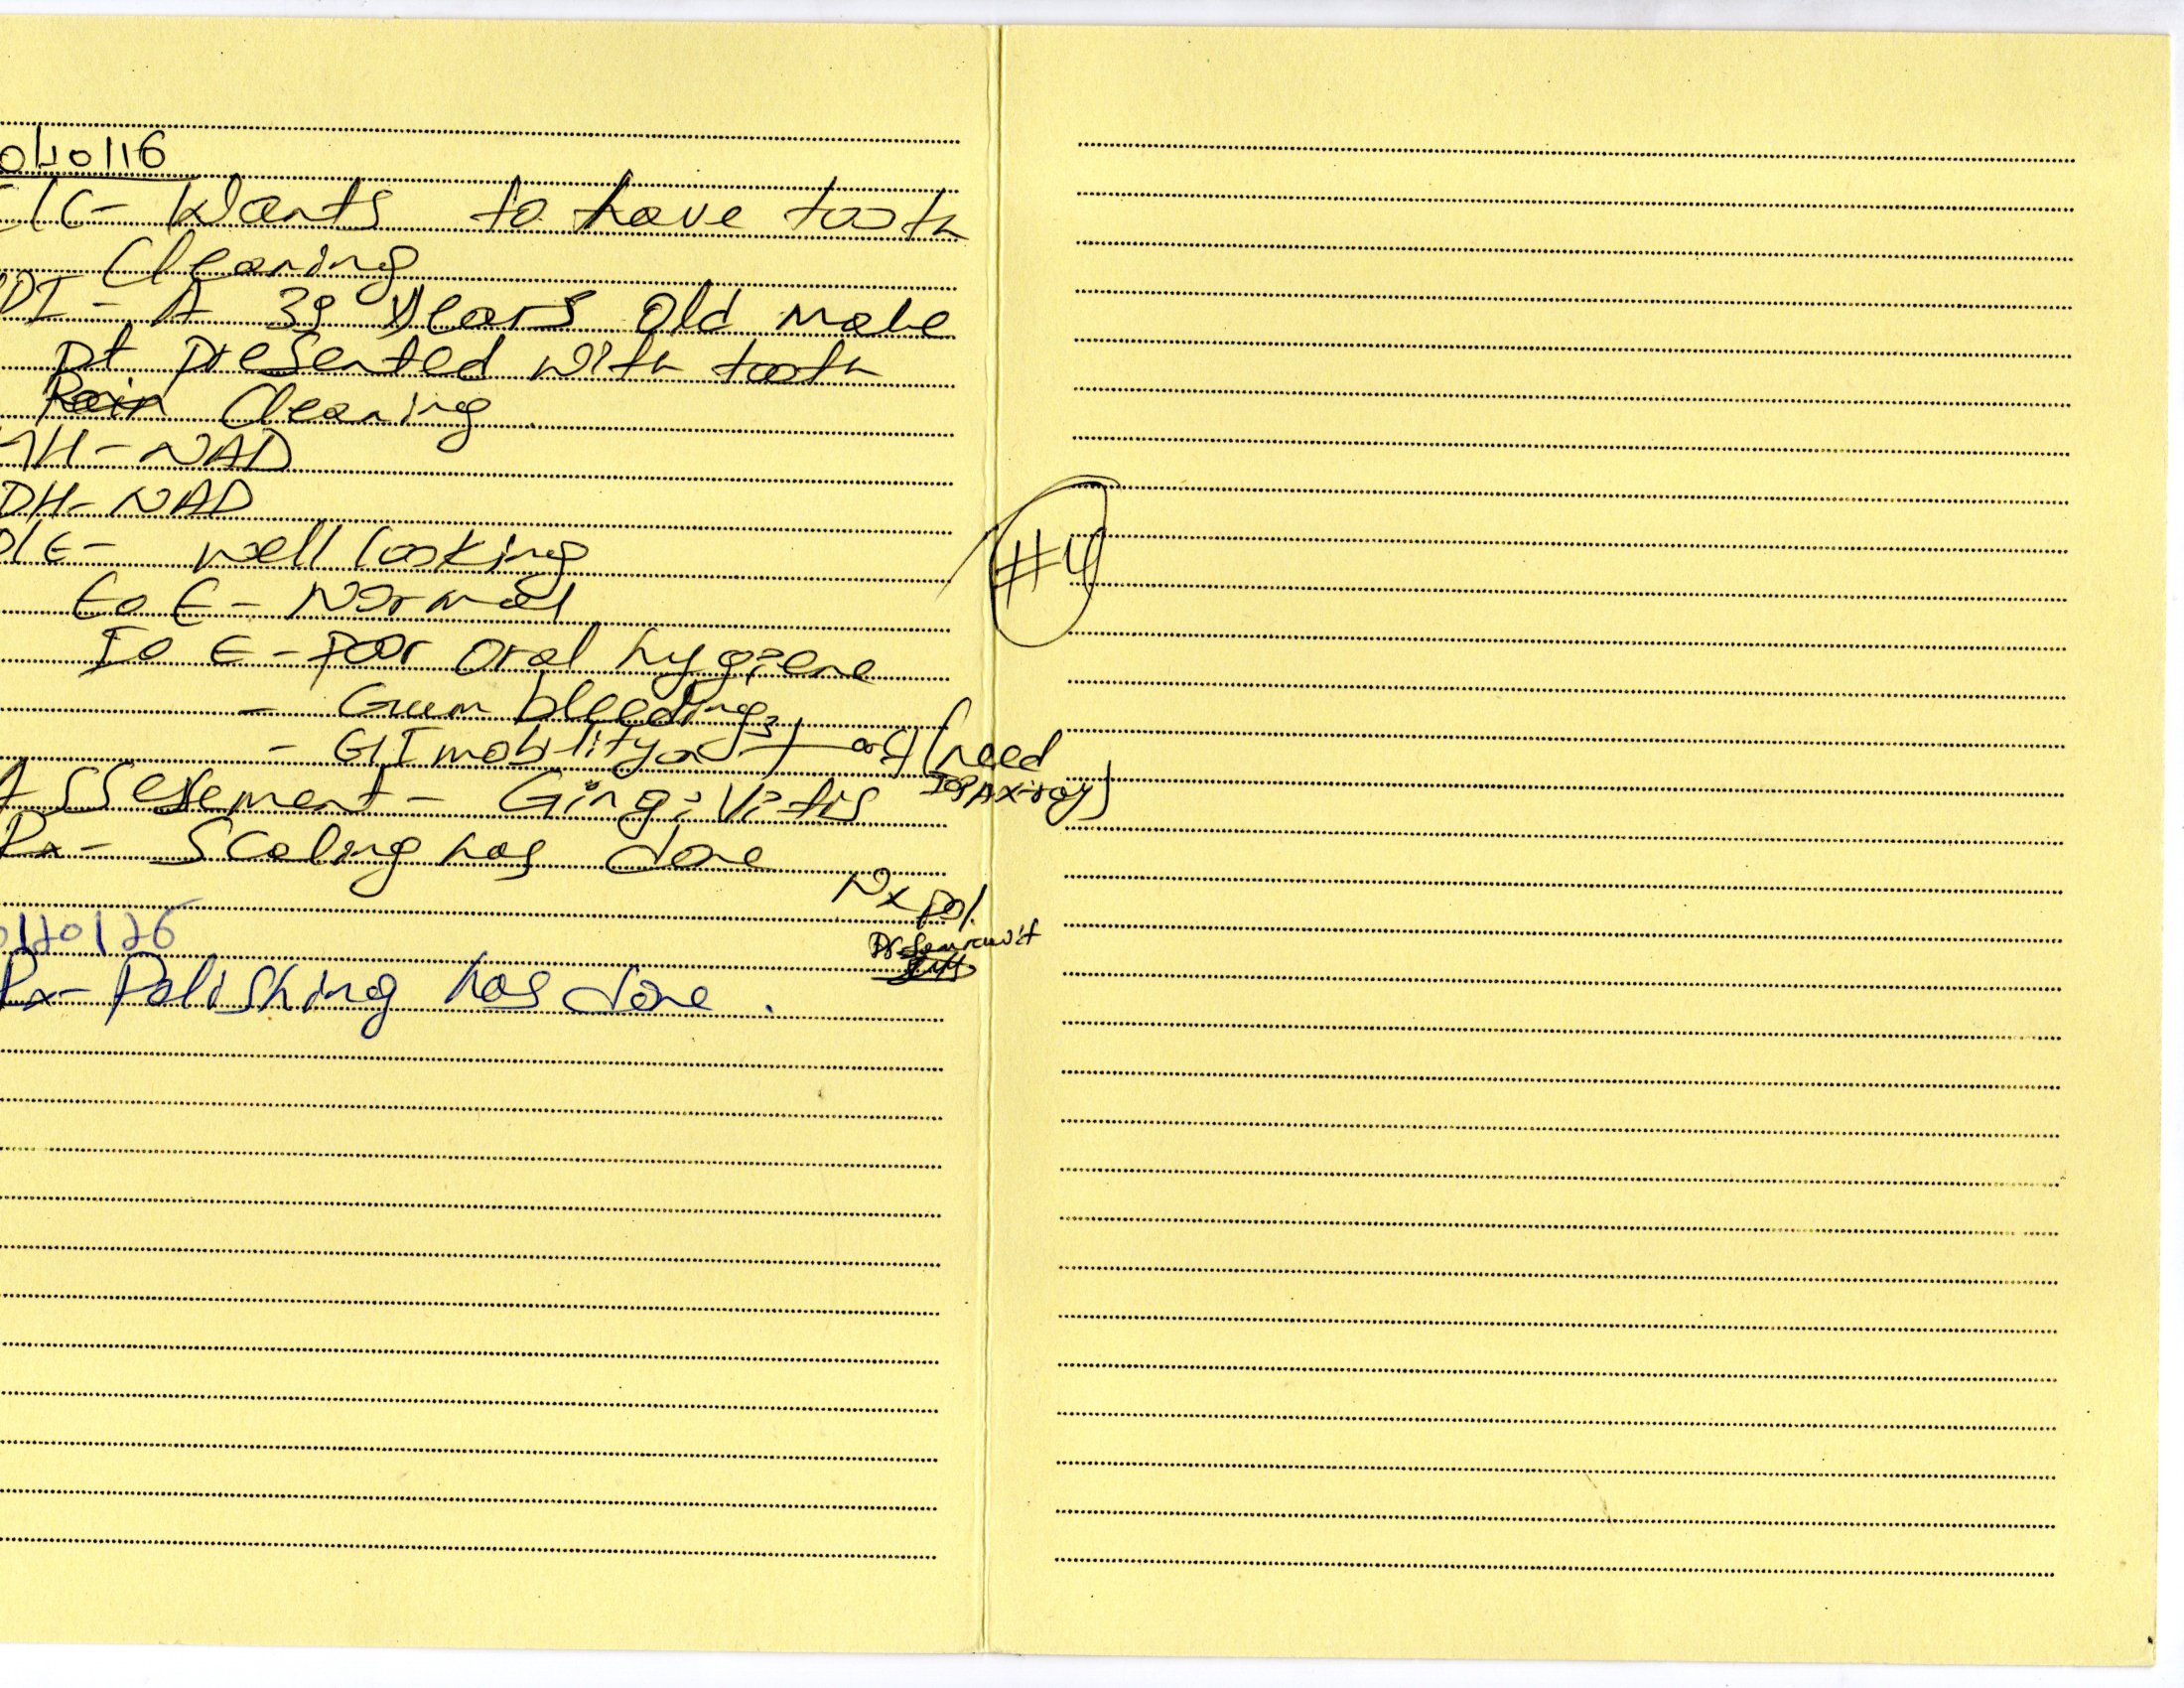 0/10/16
C/C- Wants to have tooth
Cleaning
PI - A 39 Years Old male
Pt Presented with tooth
Pain Cleaning
MH - NAD
DH - NAD
O/E - well looking
Eo E - Normal
Io E - Poor oral hygiene
- Gum bleeding
- GII mobility (need
IOPA X-ray)
#4
Assessement - Gingivitis
Rx - Scaling has done
Nx pol.
Dr.
/20/26
Rx - Polishing has done.